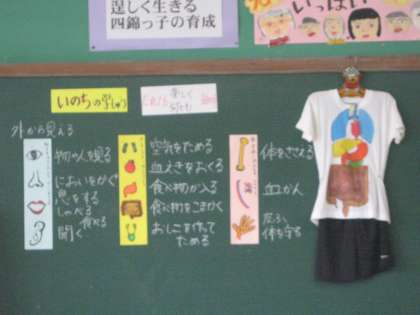 逞しく生きる
四錦っ子の育成
いっぱい
いのちの学しゅう
楽しく
外から見える
物や人を見る
においをかぐ
息をする
しゃべる
食べる
聞く
空気をためる
血えきをおくる
食べ物が入る
食べ物をこまかく
おしっこを作って
ためる
体をささえる
血かん
体を守る